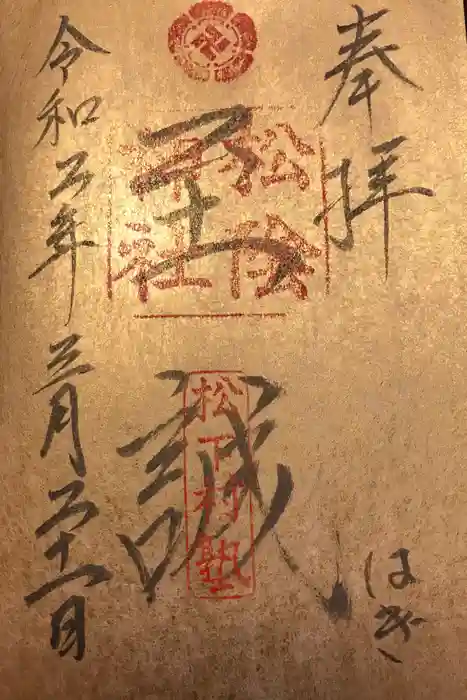 奉拝
はぎ
松陰神社
至誠
松下村塾
令和二年三月二十一日